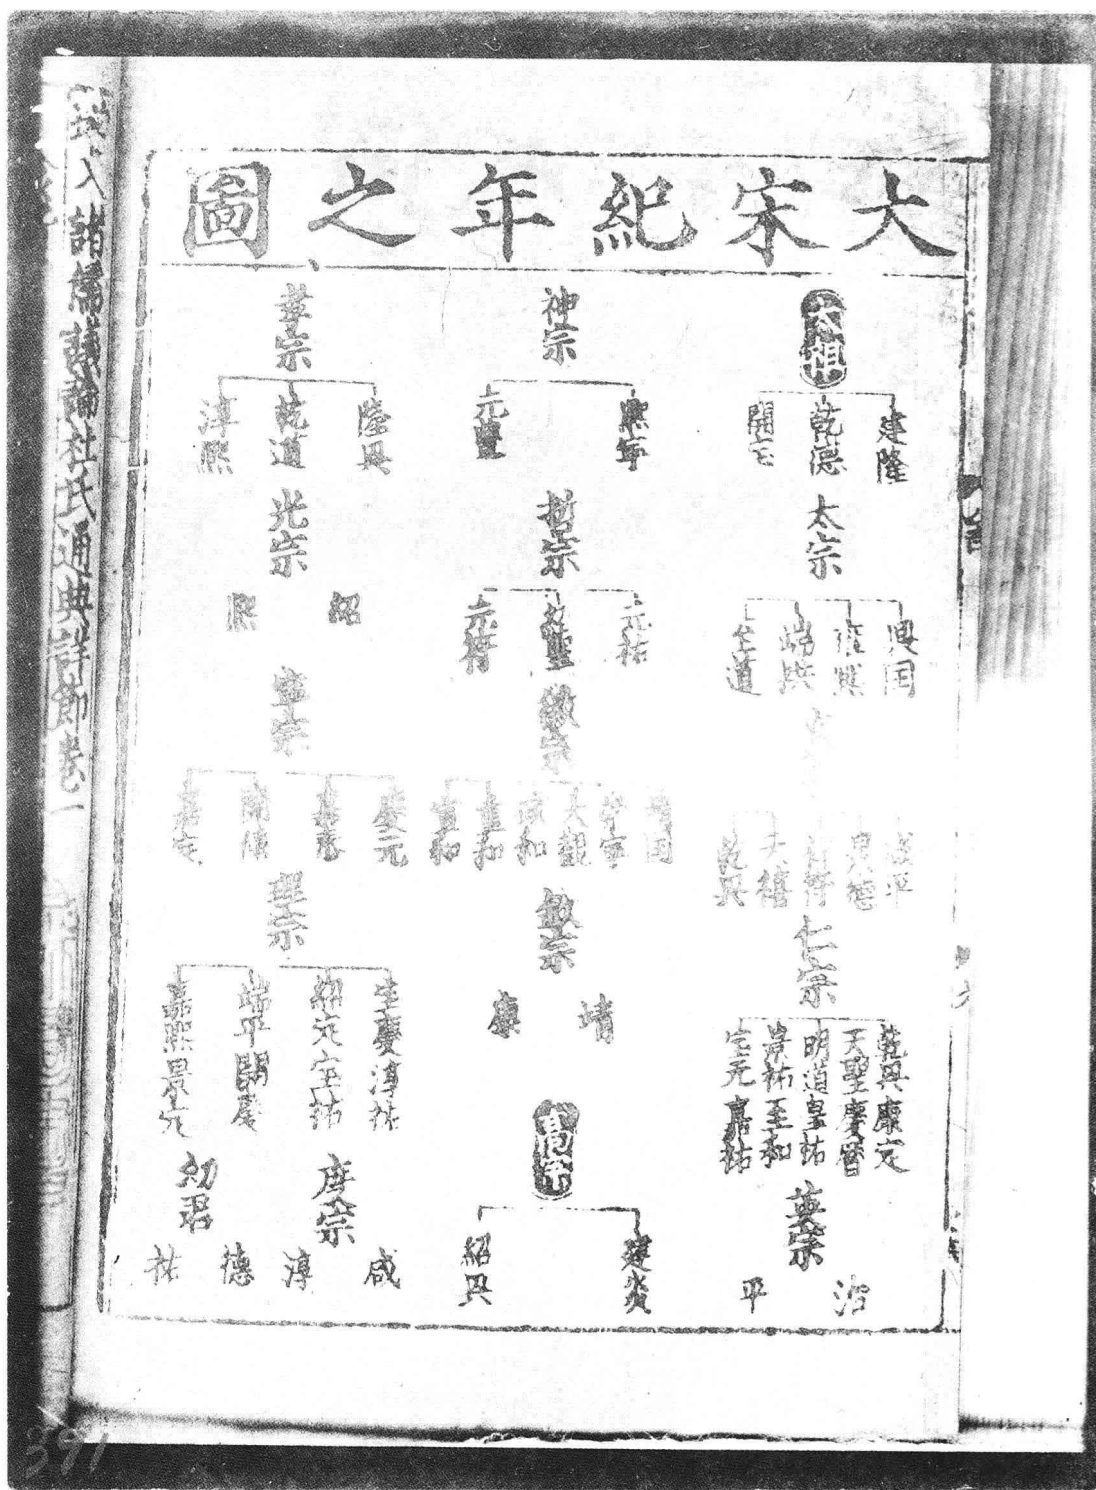 大宋紀年之圖
太祖
建隆
乾德
開宝
太宗
興国
雍熙
端拱
至道
咸平
景德
祥符
天禧
乾興
仁宗
乾興康定
天聖慶曆
明道皇祐
景祐至和
宝元嘉祐
英宗
治平
神宗
熙寧
元豐
哲宗
元祐
紹聖
元符
徽宗
靖国
崇寧
大觀
政和
重和
宣和
欽宗
靖康
高宗
建炎
紹興
孝宗
隆興
乾道
淳熙
光宗
紹熙
寧宗
慶元
嘉泰
開禧
嘉定
理宗
宝慶淳祐
紹定宝祐
端平開慶
嘉熙景定
度宗
咸淳
幼君
德祐
入諸儒議論杜氏通典詳節卷一
391